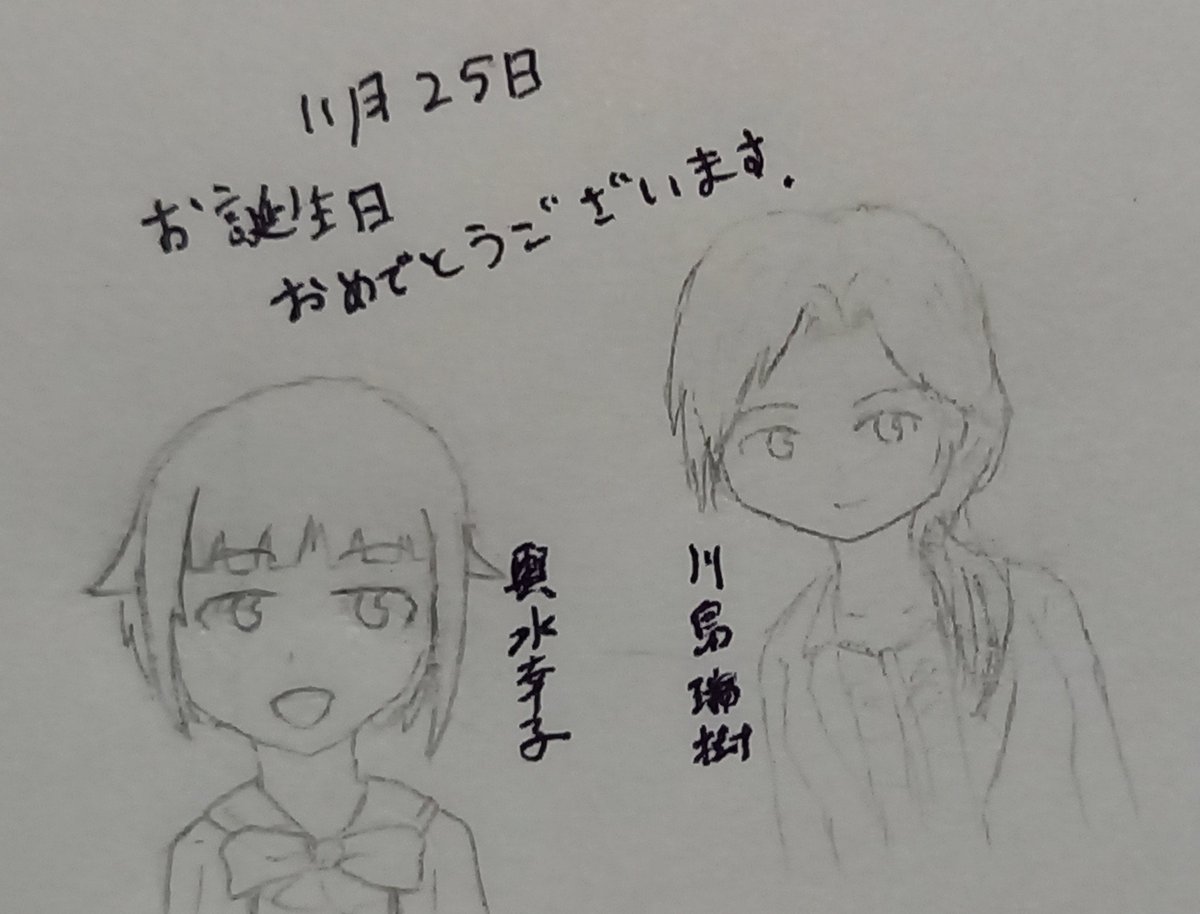 11月25日
お誕生日
おめでとうございます.
輿水幸子
川島瑞樹